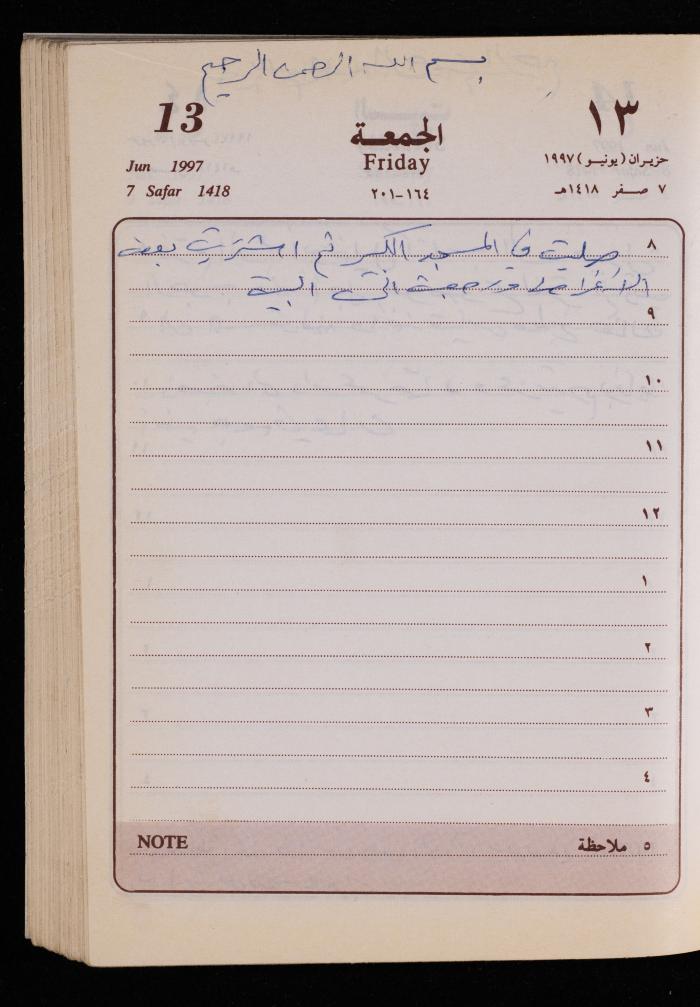 بسم الله الرحمن الرحيم
13
١٣
الجمعة
Friday
Jun 1997
حزيران (يونيو) ١٩٩٧
7 Safar 1418
٢٠١-١٦٤
٧ صفر ١٤١٨هـ
٨
صليت في المسجد الكبير ثم اشتريت بعض
الأغراض ورجعت الى البيت
٩
١٠
١١
١٢
١
٢
٣
٤
NOTE
٥ ملاحظة